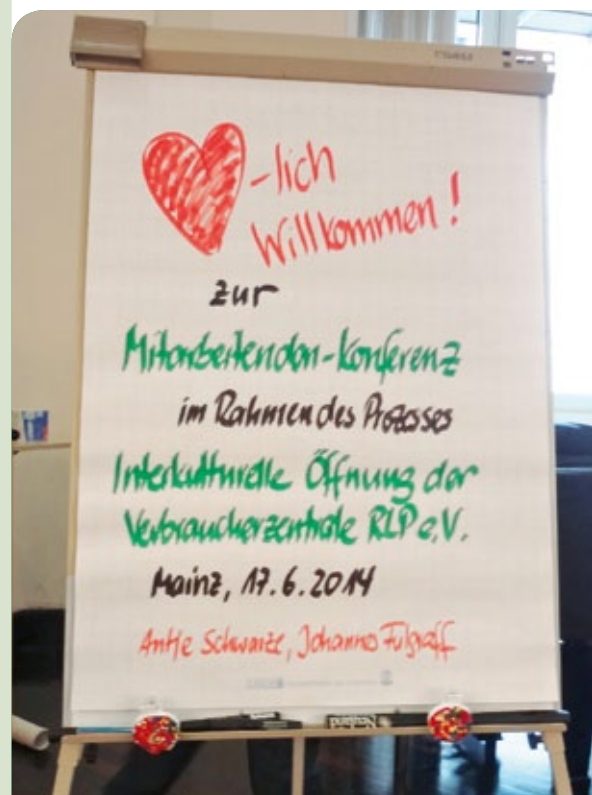 -lich
Willkommen!
zur
Mitarbeitenden-Konferenz
im Rahmen des Prozesses
Interkulturelle Öffnung der
Verbraucherzentrale RLP e.V.
Mainz, 17.6.2014
Antje Schwarze, Johannes
Neuland